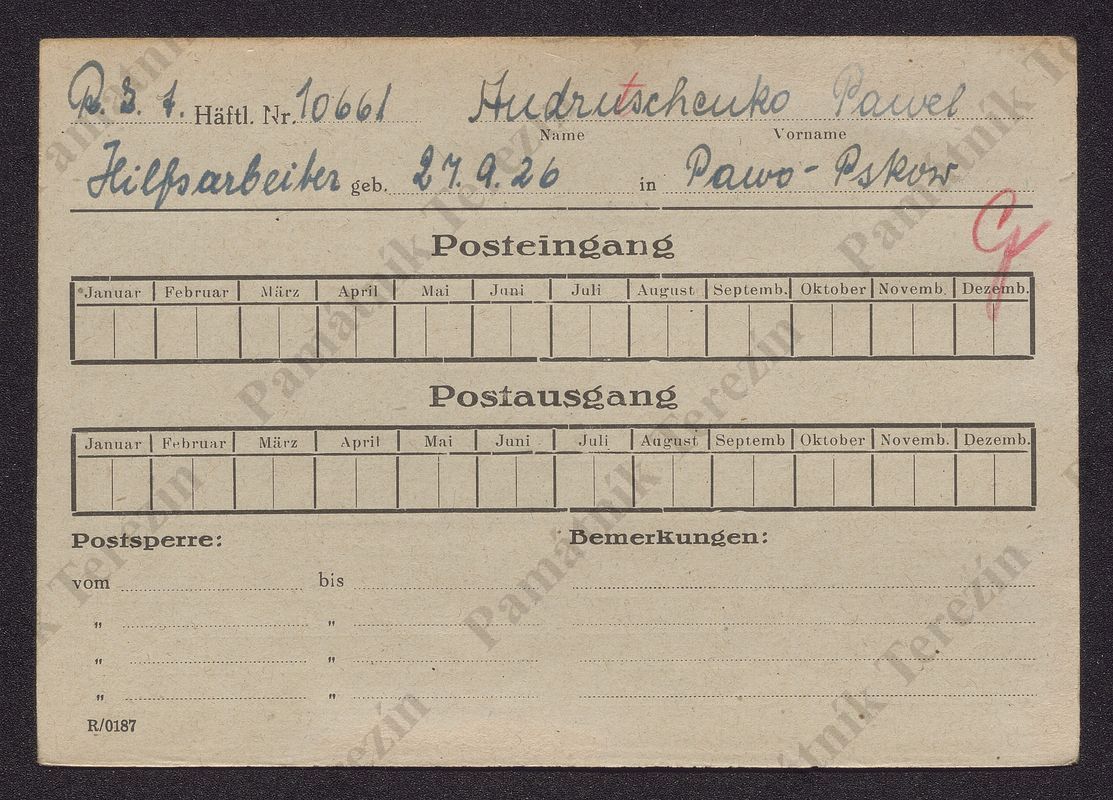 R. 3. 7. Häftl. Nr. 10661 Andrutschenko Pawel
Name Vorname
Hilfsarbeiter geb. 27.9.26 in Pawo-Pskow
Posteingang
Januar Februar März April Mai Juni Juli August Septemb. Oktober Novemb. Dezemb.
Postausgang
Januar Februar März April Mai Juni Juli August Septemb Oktober Novemb. Dezemb.
Postsperre: Bemerkungen:
vom bis
" "
" "
" "
R/0187
Památník Terezín